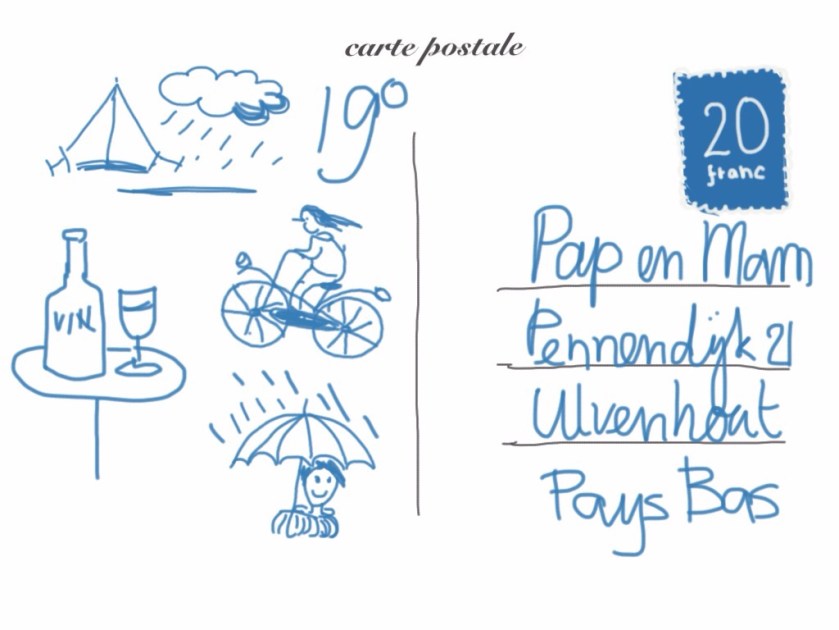 carte postale
19°
VIN
20
franc
Pap en Mam
Pennendijk 21
Ulvenhout
Pays Bas